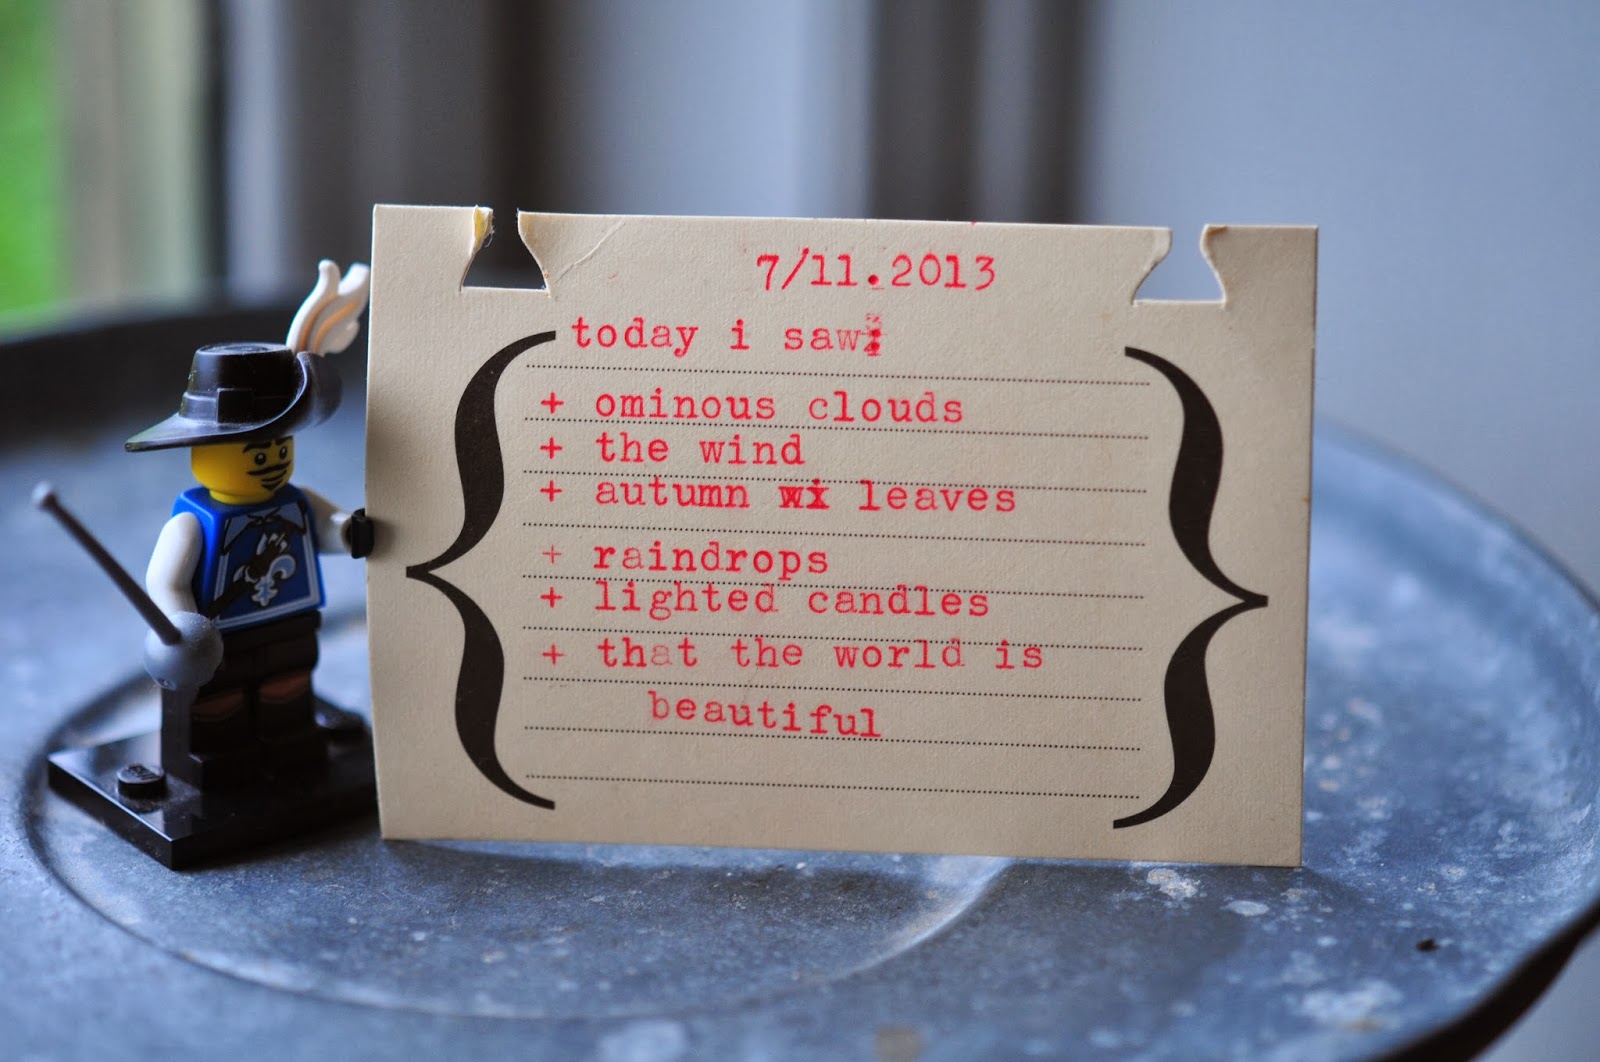 7/11.2013
today i saw:
+ ominous clouds
+ the wind
+ autumn leaves
+ raindrops
+ lighted candles
+ that the world is
beautiful